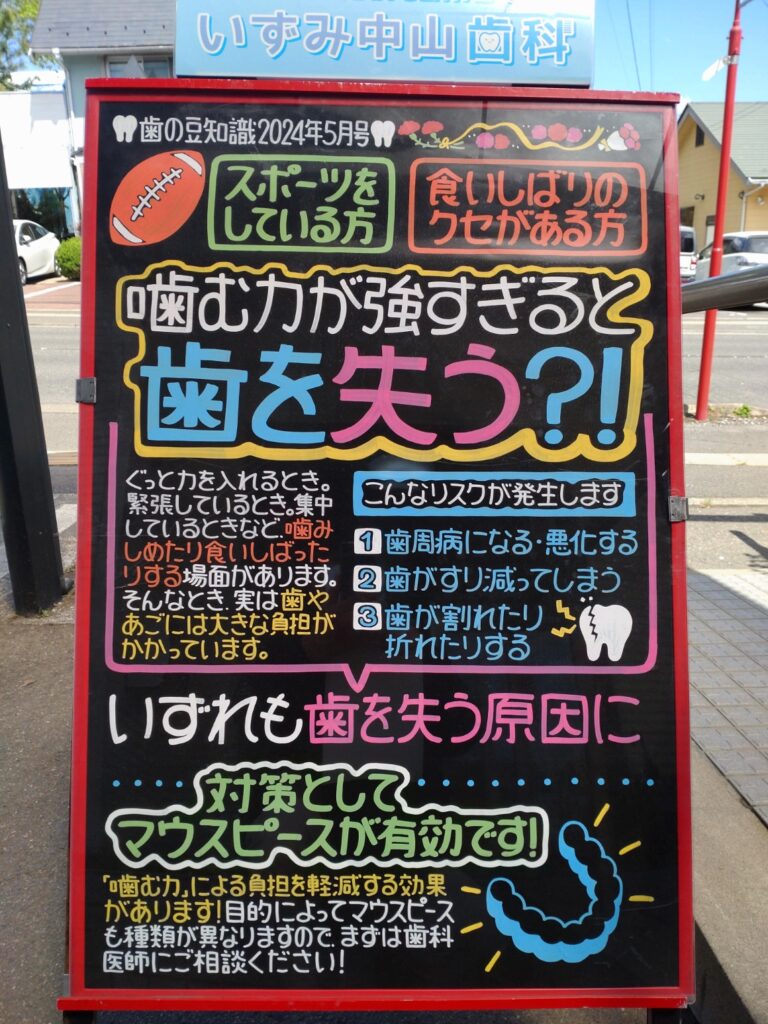 いずみ中山歯科
歯の豆知識2024年5月号
スポーツを
している方
食いしばりの
クセがある方
噛む力が強すぎると
歯を失う?!
ぐっと力を入れるとき。
緊張しているとき。集中
しているときなど、噛み
しめたり食いしばった
りする場面があります。
そんなとき、実は歯や
あごには大きな負担が
かかっています。
こんなリスクが発生します
1 歯周病になる・悪化する
2 歯がすり減ってしまう
3 歯が割れたり
折れたりする
いずれも歯を失う原因に
対策として
マウスピースが有効です!
「噛む力」による負担を軽減する効果
があります!目的によってマウスピース
も種類が異なりますので、まずは歯科
医師にご相談ください!